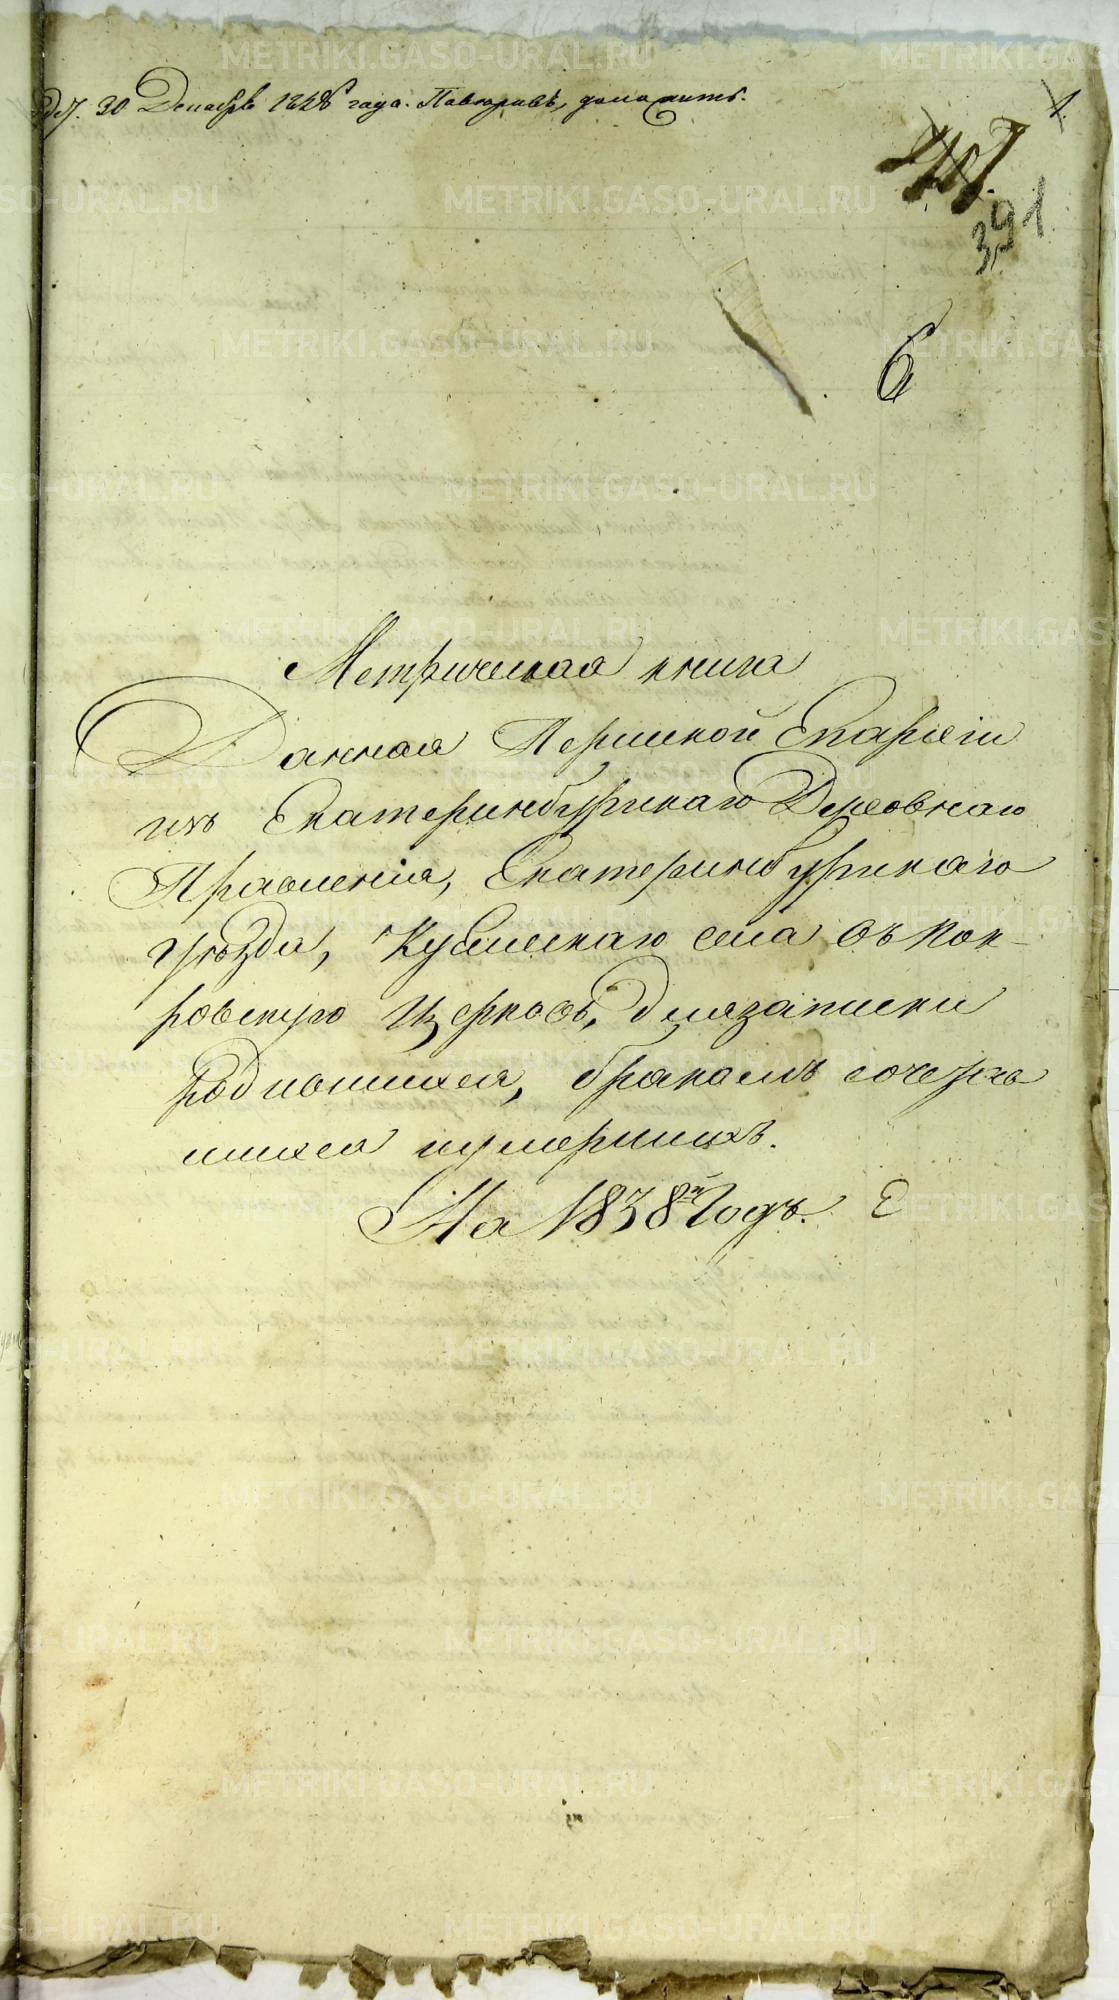 30 Декабря 1838 года. Повторивъ, доложить.
1.
391
6
Метрическая книга
Данная Пермской Епархіи
изъ Екатеринбургскаго Духовнаго
Правленія, Екатеринбургскаго
уѣзда, села въ Пок-
ровскую Церковь, для записки
родившихся, бракомъ сочетав
шихся и умершихъ.
На 1838й Годъ.
METRIKI.GASO-URAL.RU